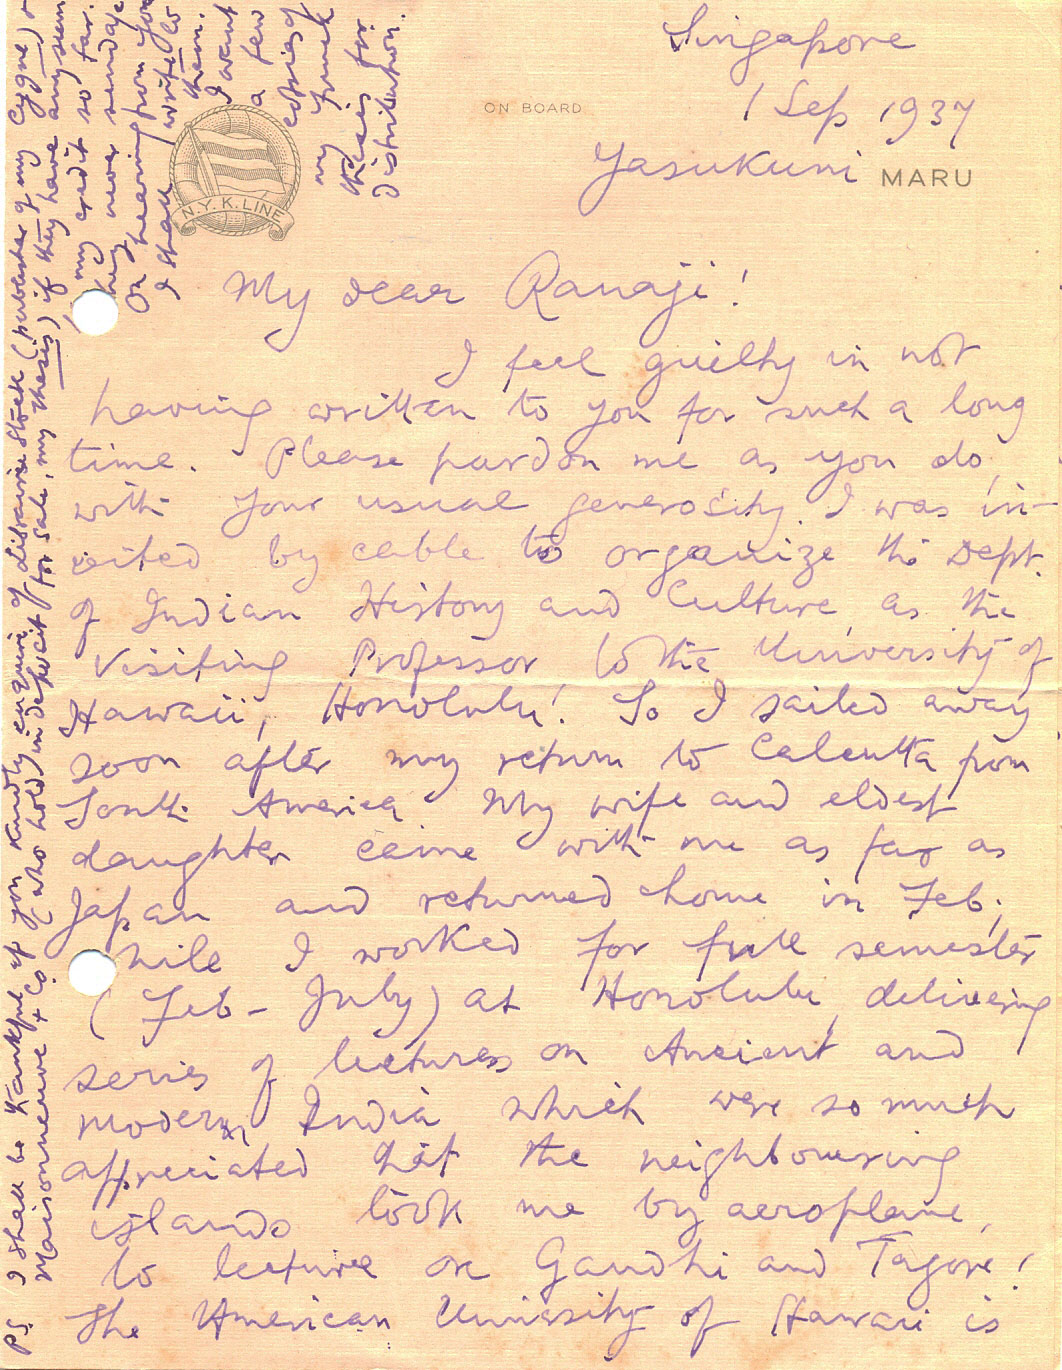 Singapore
ON BOARD
1 Sep 1937
Yasukuni MARU
N.Y.K. LINE
My dear Ranaji!
I feel guilty in not
having written to you for such a long
time. Please pardon me as you do,
with your usual generosity. I was in-
vited by cable to organize the Dept.
of Indian History and Culture, as the
Visiting Professor to the University of
Hawaii, Honolulu! So I sailed away
soon after my return to Calcutta from
South America. My wife and eldest
daughter came with me as far as
Japan and returned home in Feb.,
while I worked for full semester
(Feb - July) at Honolulu, delivering
series of lectures on Ancient and
modern India which were so much
appreciated that the neighbouring
islands took me by aeroplane,
to lecture on Gandhi and Tagore!
The American University of Hawaii is
PS. I shall be thankful if you kindly enquire of Librairie Stock (publisher of my Cygne) or
Maisonneuve & Co (who hold in deposit for sale, my thesis) if they have any sum
to my credit so far.
They never send any
On hearing from you
I shall write to
them.
I want
a few
copies of
my French
thesis for
distribution.